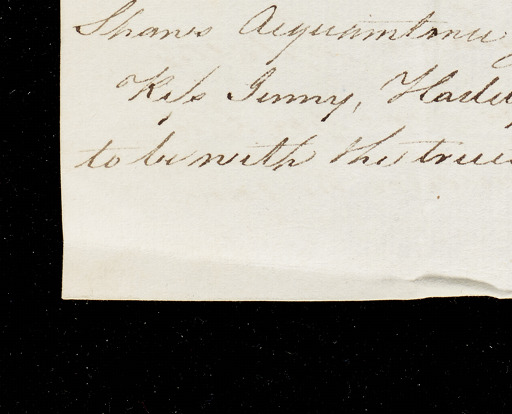 Shaws Acquaintance
Kiss Jenny, Harley
to be with the trues